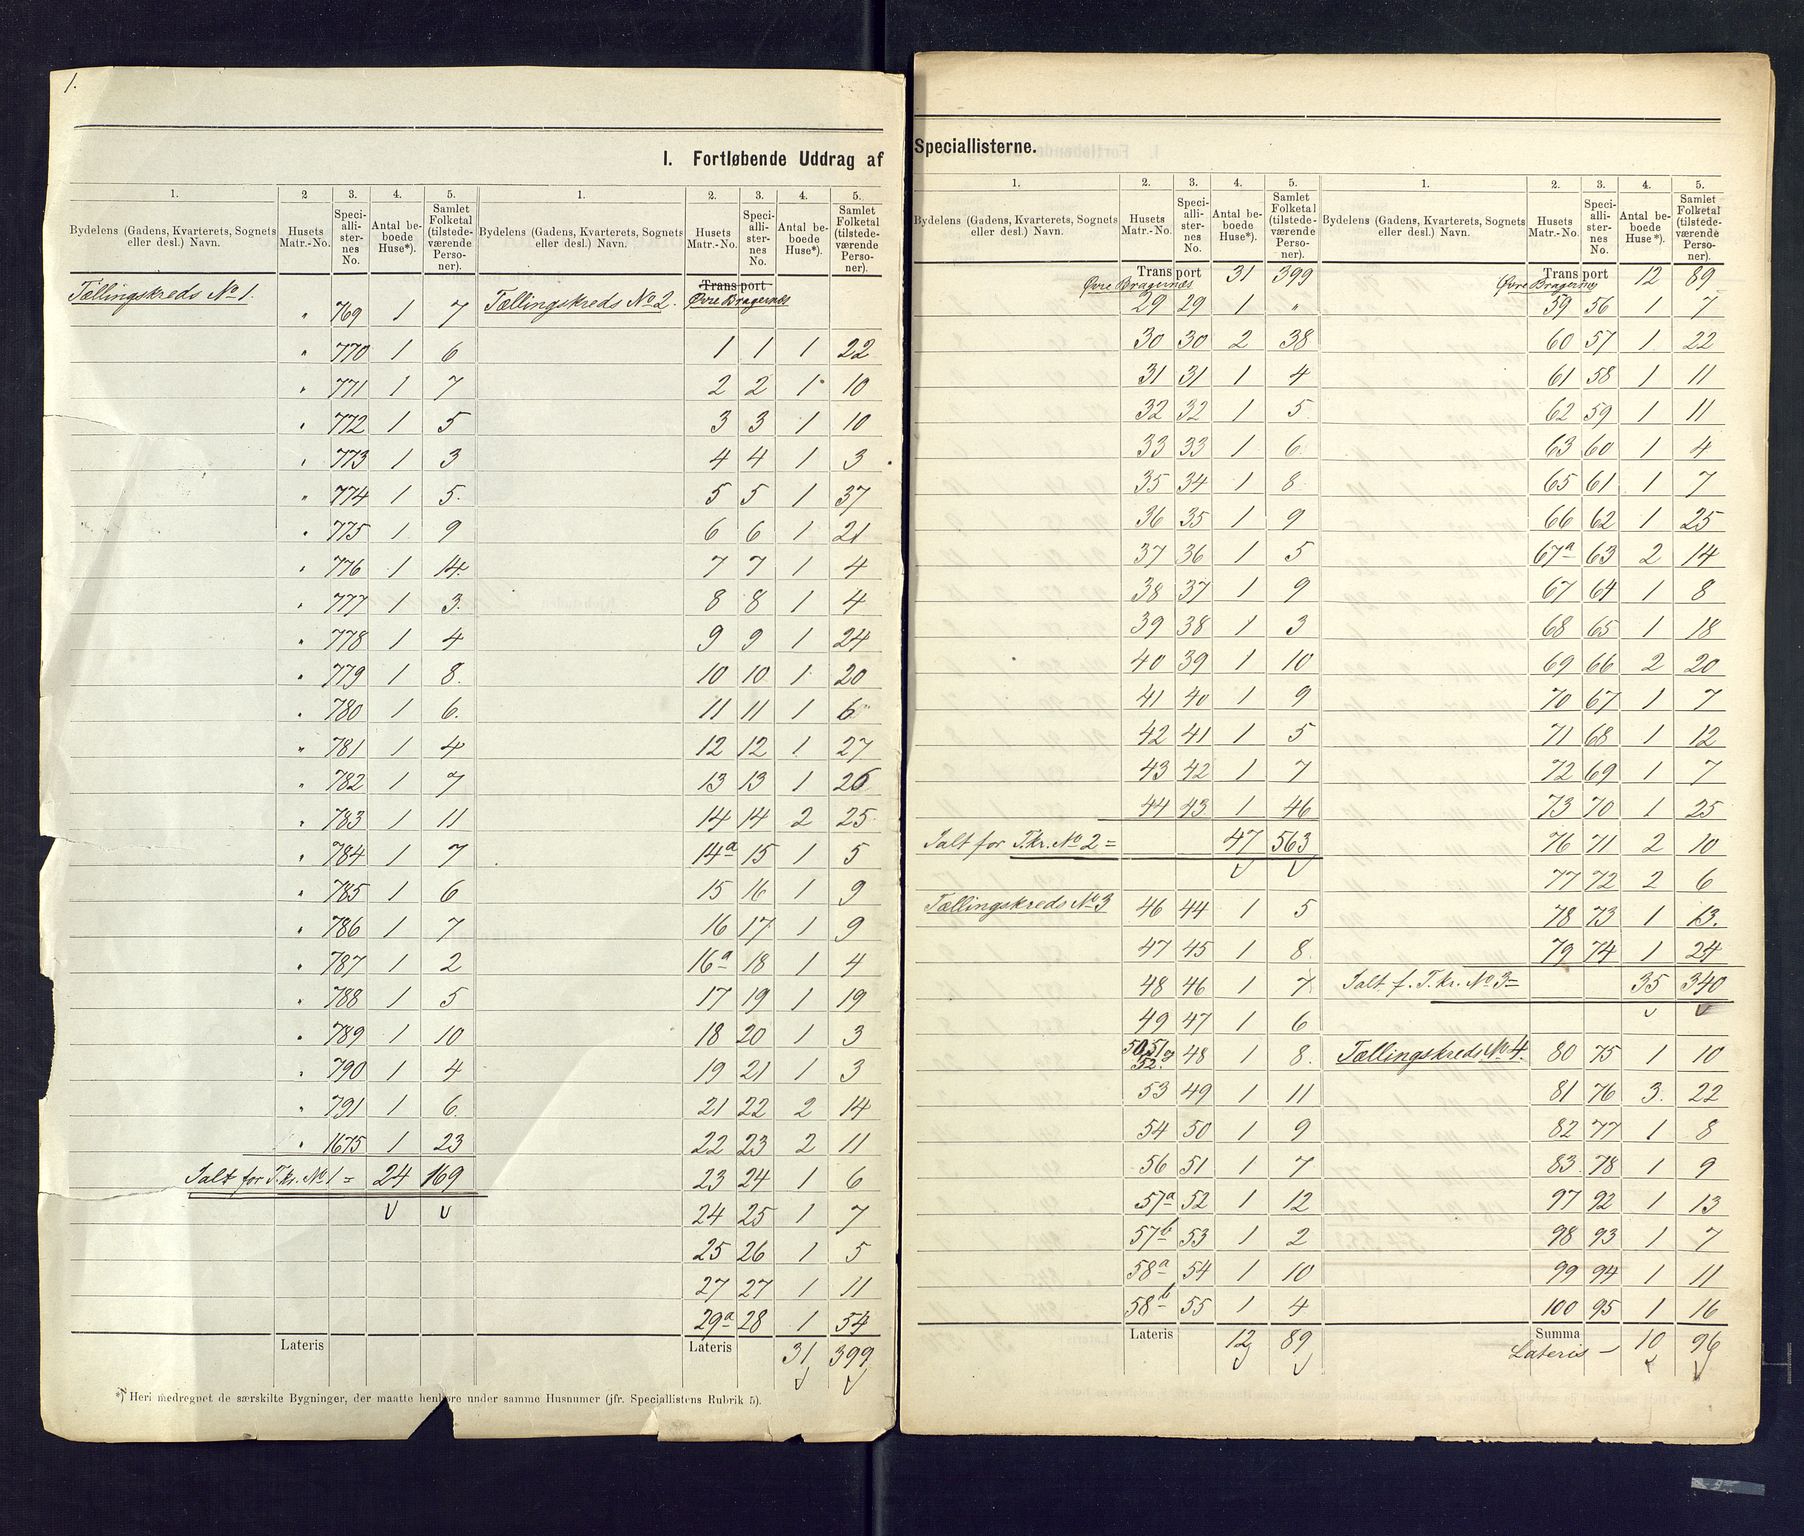 1.
I. Fortløbende Uddrag af
1. 2 3. 4. 5. 1. 2. 3. 4. 5.
Bydelens (Gadens, Kvarterets, Sognets eller desl.) Navn. Husets Matr.-No. Speci-alli-ster-nes No. Antal be-boede Huse*). Samlet Folketal (tilstede-værende Perso-ner). Bydelens (Gadens, Kvarterets, Sognets eller desl.) Navn. Husets Matr.-No. Speci-alli-ster-nes No. Antal be-boede Huse*). Samlet Folketal (tilstede-værende Perso-ner).
Transport
Tællingskreds No 1. " 769 1 7 Tællingskreds No 2. Øvre Bragernæs
" 770 1 6 1 1 1 22
" 771 1 7 2 2 1 10
" 772 1 5 3 3 1 10
" 773 1 3 4 4 1 3
" 774 1 5 5 5 1 37
" 775 1 9 6 6 1 21
" 776 1 14 7 7 1 4
" 777 1 3 8 8 1 4
" 778 1 4 9 9 1 24
" 779 1 8 10 10 1 20
" 780 1 6 11 11 1 6
" 781 1 4 12 12 1 27
" 782 1 7 13 13 1 26
" 783 1 11 14 14 2 25
" 784 1 7 14a 15 1 5
" 785 1 6 15 16 1 9
" 786 1 7 16 17 1 9
" 787 1 2 16a 18 1 4
" 788 1 5 17 19 1 19
" 789 1 10 18 20 1 3
" 790 1 4 19 21 1 3
" 791 1 6 21 22 2 14
" 1675 1 23 22 23 2 11
Ialt for T.kr. No 1 = 24 169 23 24 1 6
24 25 1 7
25 26 1 5
27 27 1 11
29a 28 1 54
Lateris Lateris 31 399
*) Heri medregnet de særskilte Bygninger, der maatte henhøre under samme Husnumer (jfr. Speciallistens Rubrik 5).
Speciallisterne.
1. 2. 3. 4. 5. 1. 2. 3. 4. 5.
Bydelens (Gadens, Kvarterets, Sognets eller desl.) Navn. Husets Matr.-No. Speci-alli-ster-nes No. Antal be-boede Huse*). Samlet Folketal (tilstede-værende Perso-ner). Bydelens (Gadens, Kvarterets, Sognets eller desl.) Navn. Husets Matr.-No. Speci-alli-ster-nes No. Antal be-boede Huse*). Samlet Folketal (tilstede-værende Perso-ner).
Transport 31 399 Transport 12 89
Øvre Bragernæs Øvre Bragernæs
29 29 1 " 59 56 1 7
30 30 2 38 60 57 1 22
31 31 1 4 61 58 1 11
32 32 1 5 62 59 1 11
33 33 1 6 63 60 1 4
35 34 1 8 65 61 1 7
36 35 1 9 66 62 1 25
37 36 1 5 67a 63 2 14
38 37 1 9 67 64 1 8
39 38 1 3 68 65 1 18
40 39 1 10 69 66 2 20
41 40 1 9 70 67 1 7
42 41 1 5 71 68 1 12
43 42 1 7 72 69 1 7
44 43 1 46 73 70 1 25
Ialt for T.kr. No 2 = 47 563 76 71 2 10
77 72 2 6
Tællingskreds No 3 46 44 1 5 78 73 1 13.
47 45 1 8 79 74 1 24
48 46 1 7 Ialt f. T.kr. No 3 = 35 340
49 47 1 6
50, 51 og 52. 48 1 8. Tællingskreds No 4. 80 75 1 10
53 49 1 11 81 76 3. 22
54 50 1 9 82 77 1 8
56 51 1 7 83 78 1 9
57a 52 1 12 97 92 1 13
57b 53 1 2 98 93 1 7
58a 54 1 10 99 94 1 11
58b 55 1 4 100 95 1 16
Lateris 12 89 Summa 10 96
Lateris